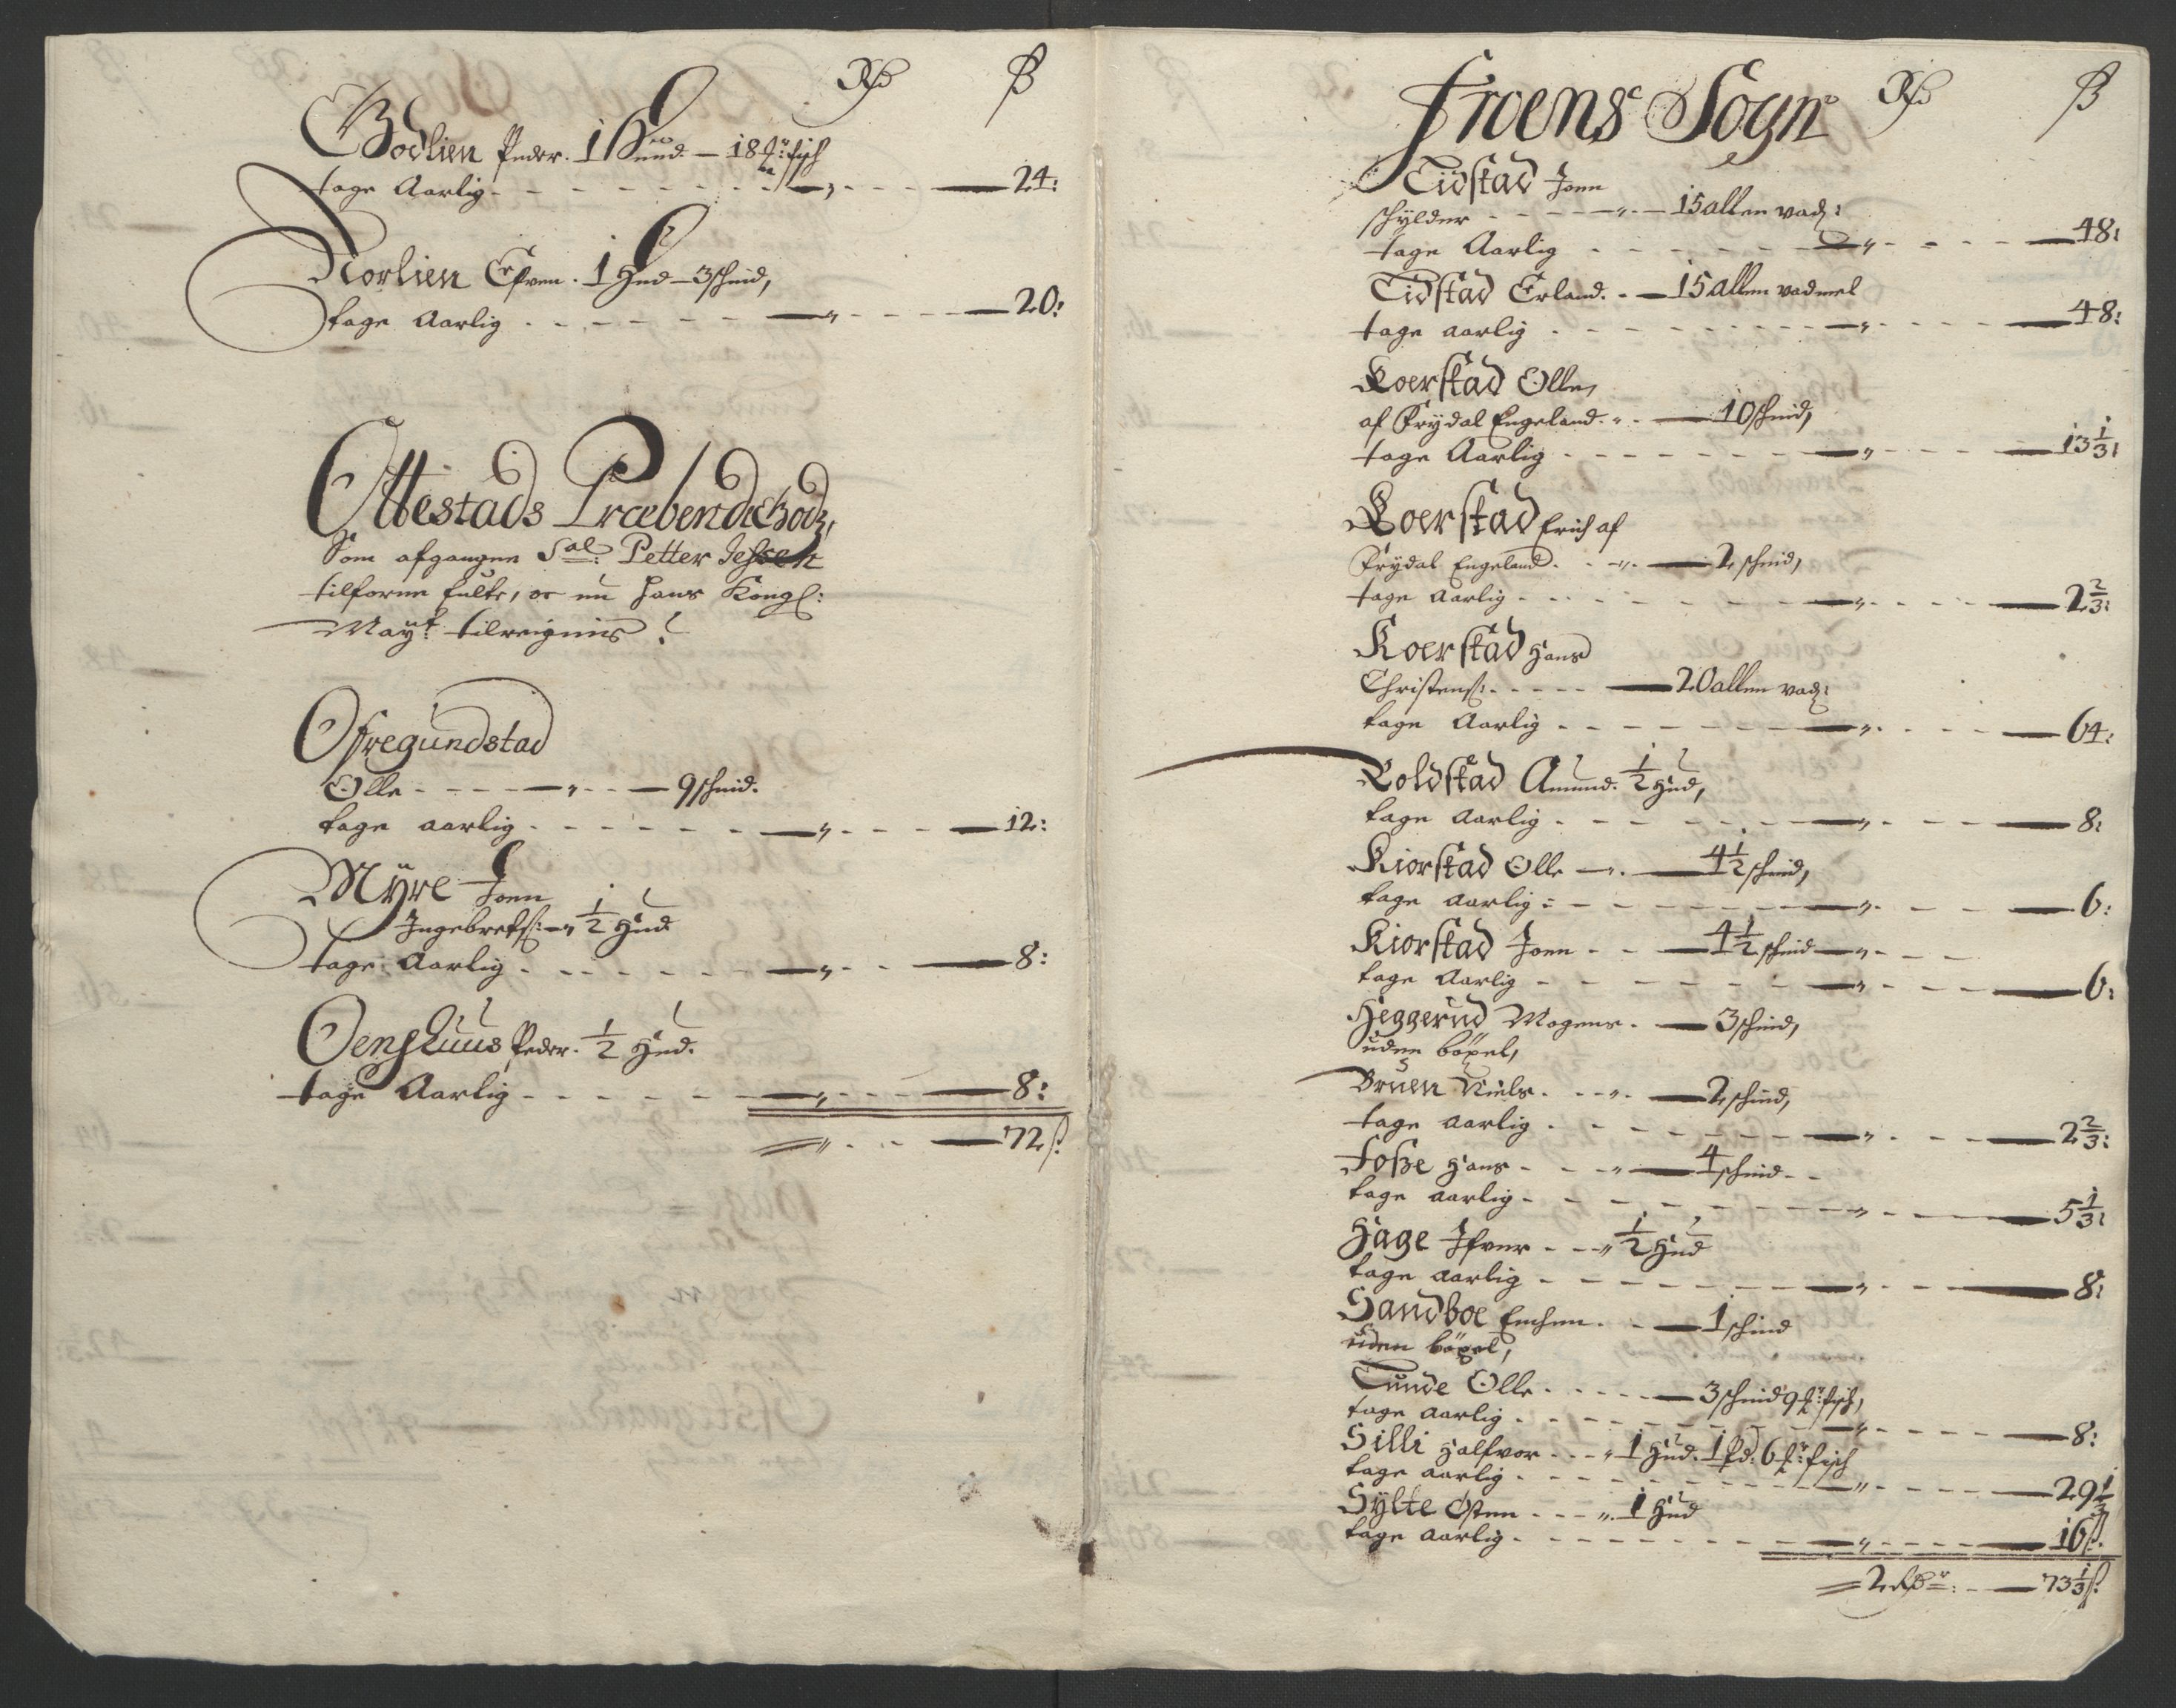 Rdr ß
Godlien Peder. 1 Huud — 18 fisch
tage Aarlig - - - 24:
Norlien Efven. 1 Hud — 3 schind,
tage Aarlig - - - 20:
Ottestads Præbende Godz,
Som afgangne Sal: Petter Jessen
tilforne fulte, oc nu Hans Kongl:
Mayt: tilreignis
Offregundstad
Olle - - - 9 schind.
tage aarlig - - - 12:
Myre Joen
Ingebretß: - ½ Hud
tage Aarlig - - - 8:
Oenshuus Peder. ½ Hud.
tage Aarlig - - - 8:
72 ß.
Froens Sogn Rdr ß
Tidstad Joen
schylder - - - 15 allen vad:
tage Aarlig - - - 48:
Tidstad Erland. - 15 allen vadmel
tage aarlig - - - 48:
Koerstad Olle,
af Frydal Engeland. - 10 schind,
tage Aarlig - - - 13 1/3:
Koerstad Erich af
Frydal Engeland. - 2 schind,
tage Aarlig - - - 2 2/3:
Koerstad Hans
Christenß: - - - 20 allen vad:
tage Aarlig - - - 64:
Koldstad Amund. ½ Hud,
tage Aarlig - - - 8:
Kiorstad Olle - 4½ schind,
tage aarlig: - - - 6:
Kiorstad Joen - - 4½ schind - - -
tage Aarlig - - - 6:
Heggerud Mogens. - 3 schind,
uden böxel,
Bruen Niels. - - 2 schind,
tage aarlig - - - 2 2/3:
Foße Hans - - 4 schind - -
tage aarlig - - - 5 1/3:
Hage Ifver - - ½ Hud
tage aarlig - - - 8:
Sandboe Emben. - 1 schind
uden böxel,
Tunde Olle - - - 3 schind 9 fisch,
tage aarlig - - - 8:
Silli Halfvor - - 1 Hud. 1 Pd: 6 fisch
tage aarlig - - - 29 1/3
Sylte Østen - - - 1 Hud
tage aarlig - - - 16 ß.
2 Rdr: - 73 1/3 ß.